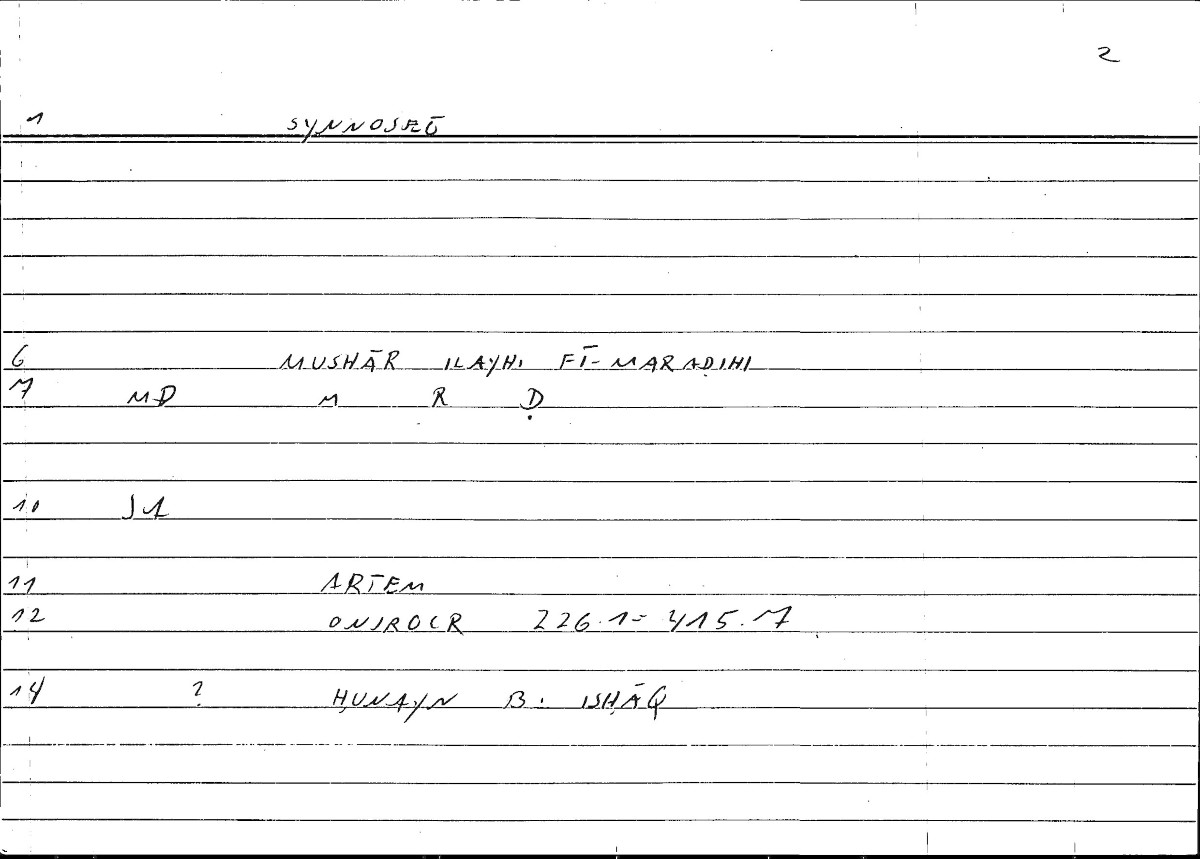 2
1 SYNNOSEŌ
6 MUSHĀR ILAYHI FĪ-MARAḌIHI
7 MD M R Ḍ
10 J1
11 ARTEM
12 ONIROCR 226.1 = 415.7
14 ? ḤUNAYN B. ISḤĀQ